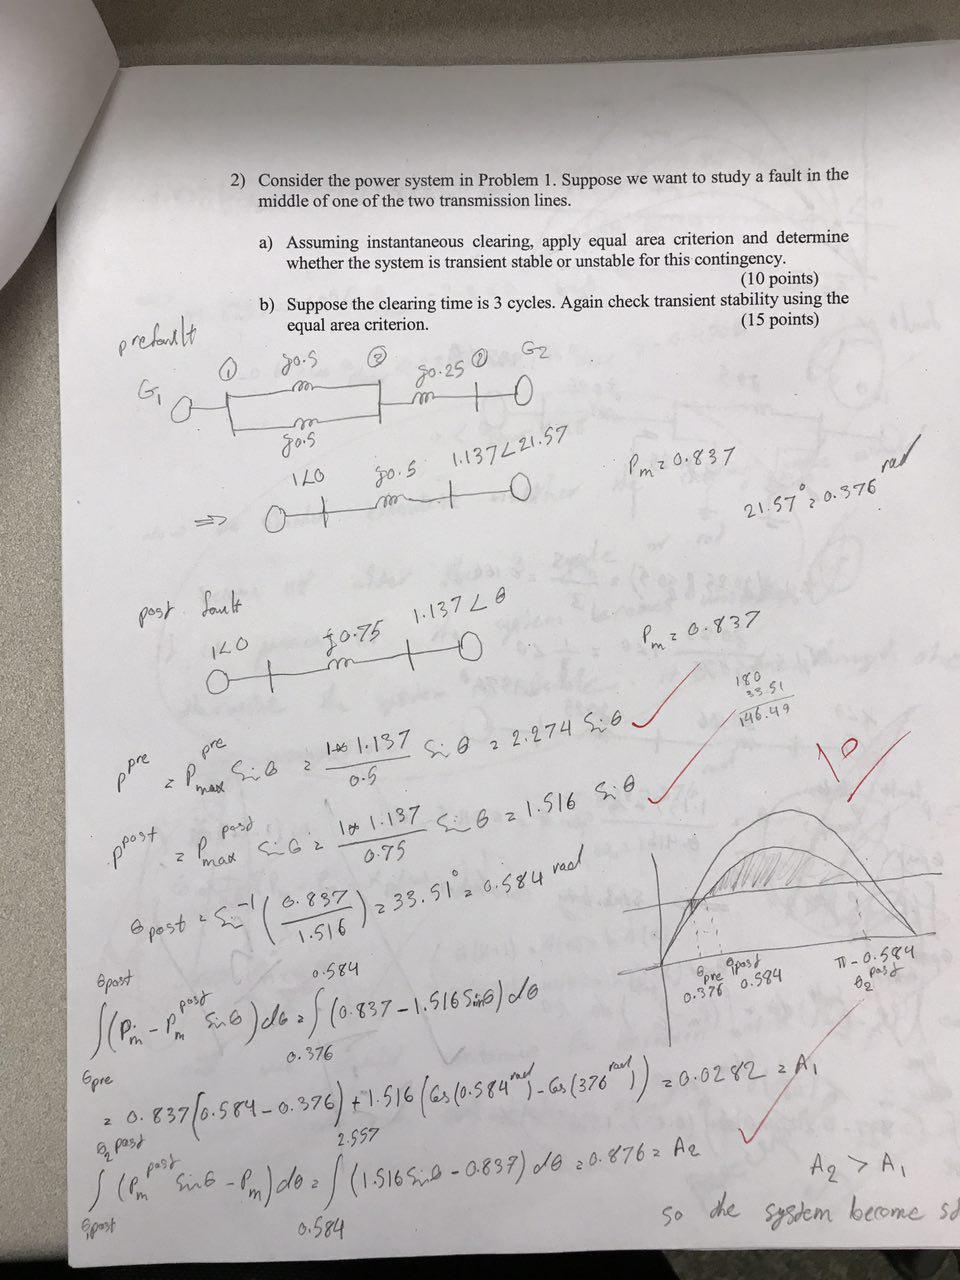 2) Consider the power system in Problem 1. Suppose we want to study a fault in the
middle of one of the two transmission lines.
a) Assuming instantaneous clearing, apply equal area criterion and determine
whether the system is transient stable or unstable for this contingency.
(10 points)
b) Suppose the clearing time is 3 cycles. Again check transient stability using the
equal area criterion. (15 points)
prefault
G1 ① j0.5 ③ j0.25 ② G2
j0.5
1∠0 j0.5 1.137∠21.57 Pm = 0.837
⇒ 21.57° = 0.376 rad
post fault
1∠0 j0.75 1.137∠θ Pm = 0.837
180
33.51
146.49
P^pre = P^pre_max Sin θ = 1*1.137/0.5 Sin θ = 2.274 Sin θ
10
P^post = P^post_max Sin θ = 1*1.137/0.75 Sin θ = 1.516 Sin θ
θpost = Sin^-1 (0.837/1.516) = 33.51° = 0.584 rad
θpre θpost π - 0.584
0.376 0.584 θ2^post
∫_θpre^θpost (Pm - Pm^post Sin θ) dθ = ∫_0.376^0.584 (0.837 - 1.516 Sin θ) dθ
= 0.837 (0.584 - 0.376) + 1.516 (Cos (0.584 rad) - Cos (376 rad)) = 0.0282 = A1
∫_θpost^θ2post (Pm^post Sin θ - Pm) dθ = ∫_0.584^2.557 (1.516 Sin θ - 0.837) dθ = 0.876 = A2
A2 > A1
so the system become